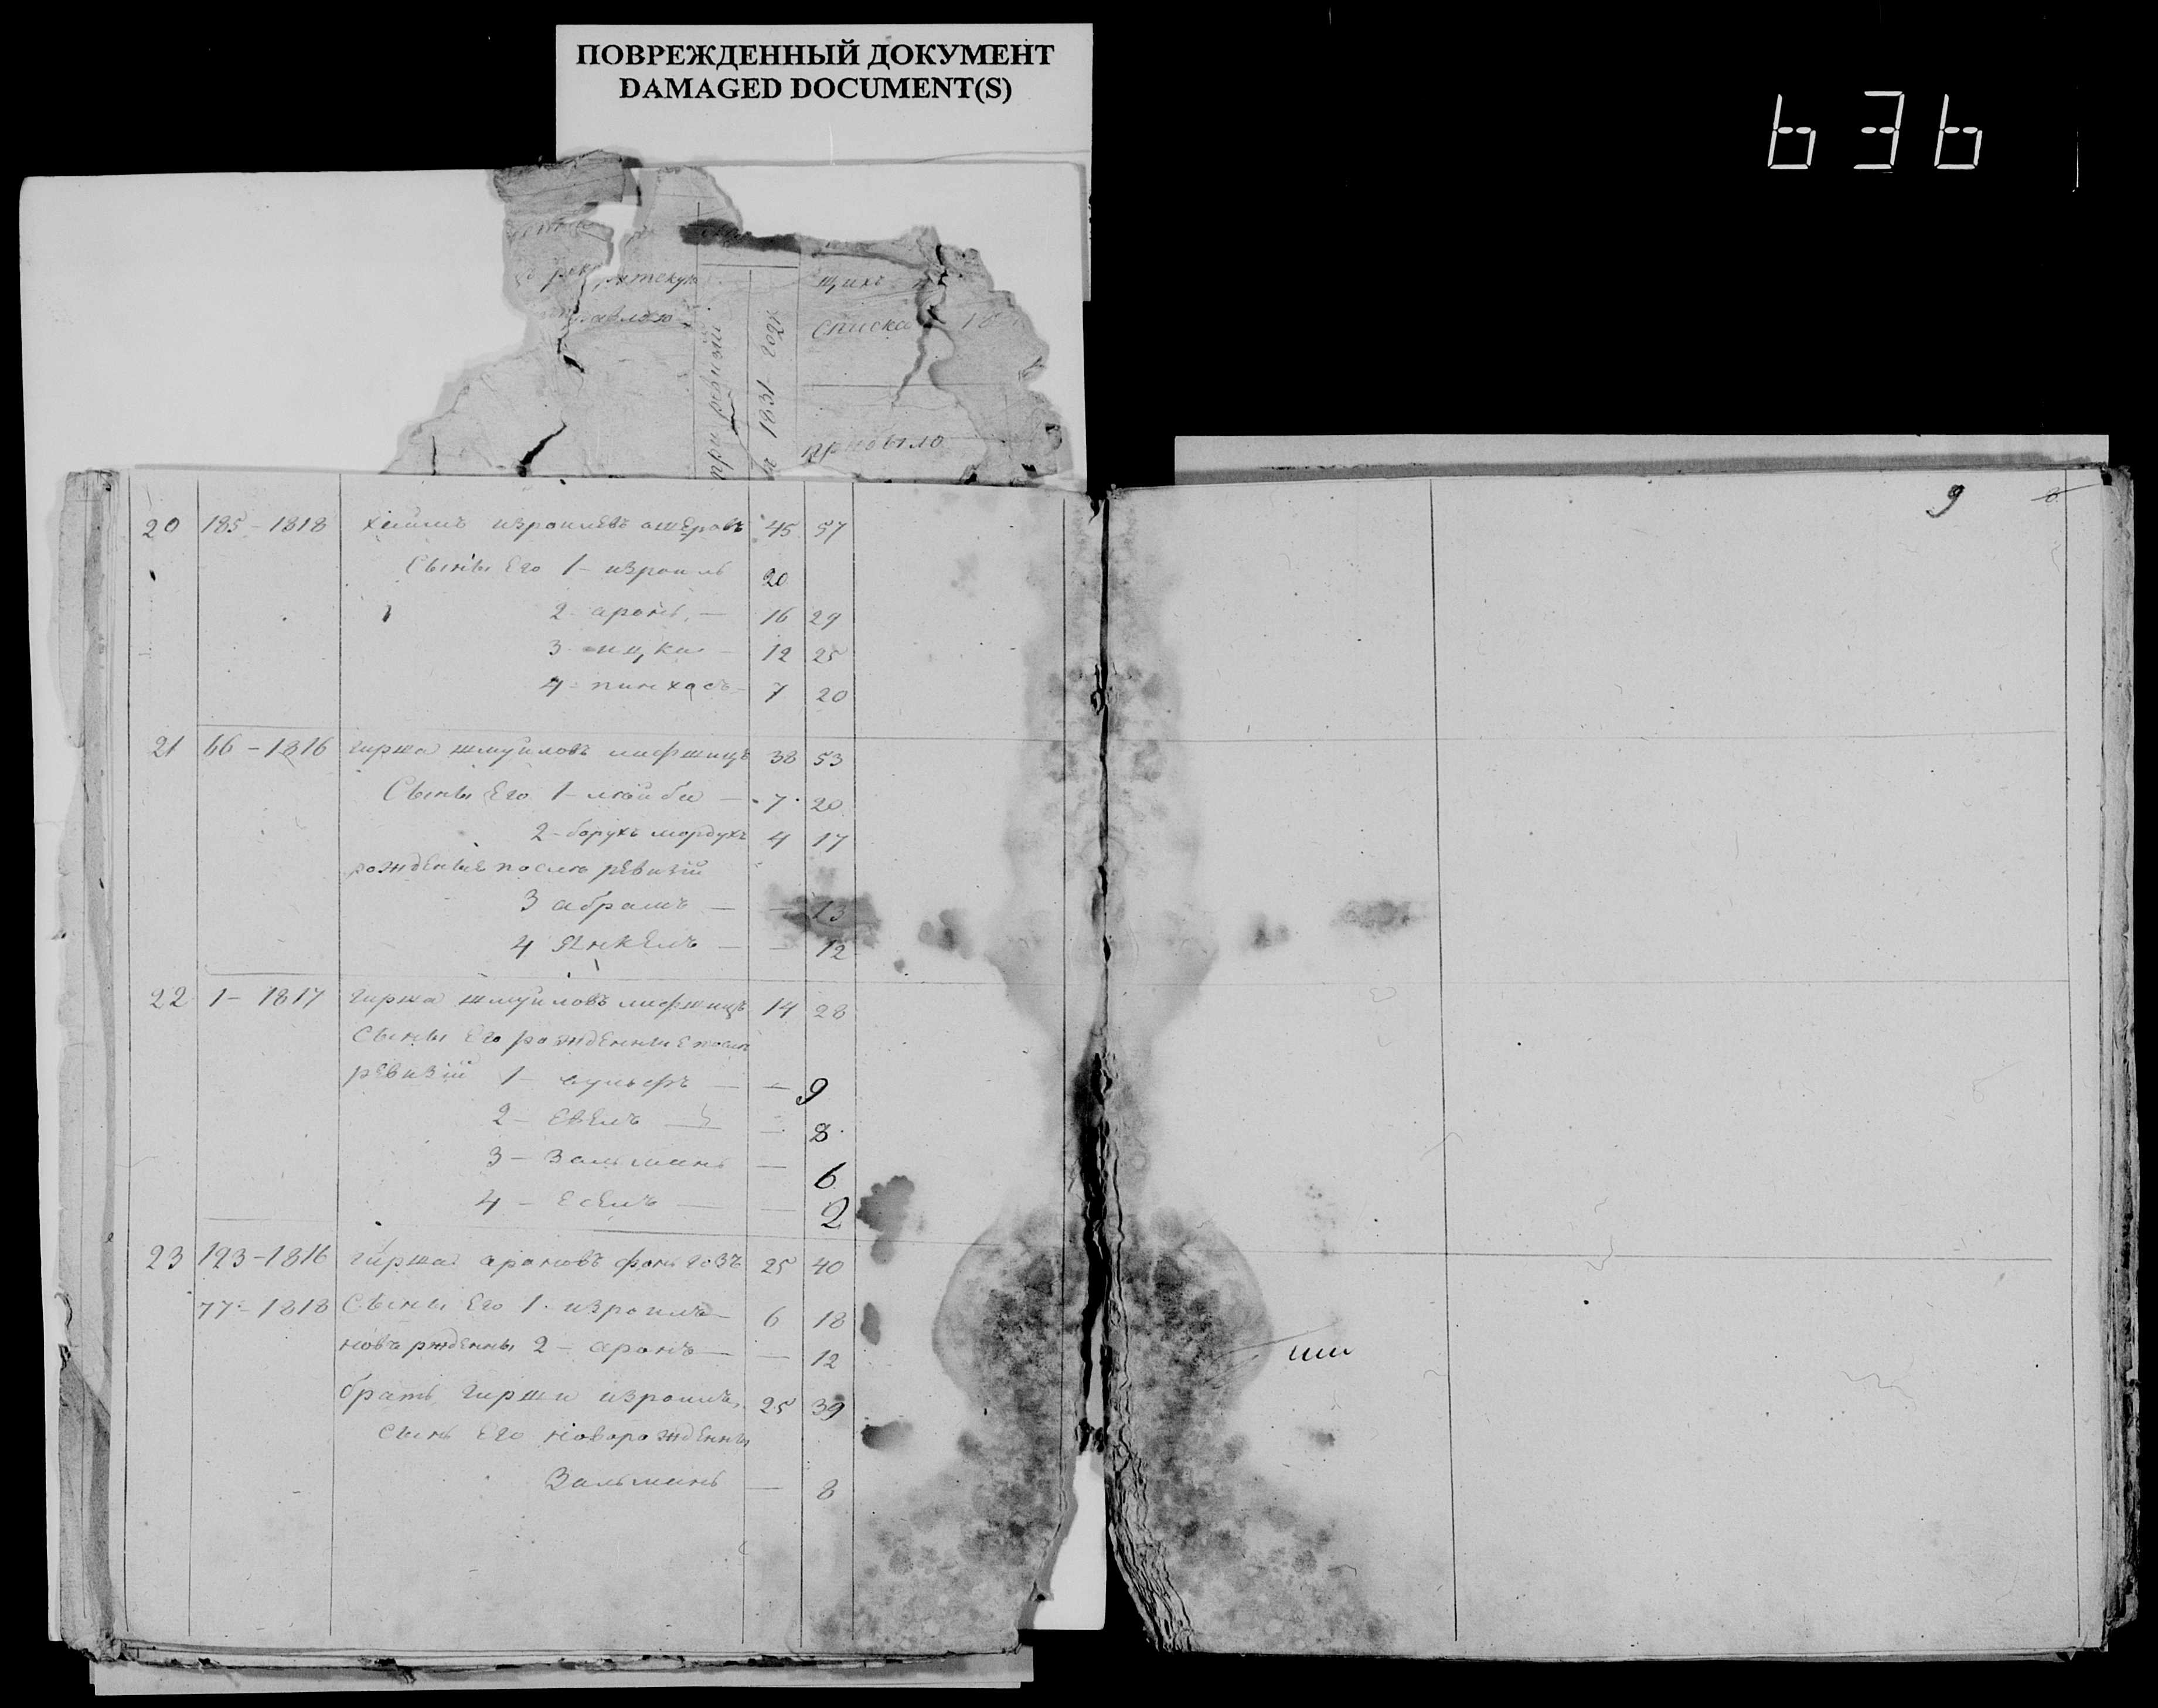 ПОВРЕЖДЕННЫЙ ДОКУМЕНТ
DAMAGED DOCUMENT(S)
636
щихъ
списка 18
при ревизіи
1831 года
прибыло
9 8
20 185 - 1818 хаимъ израилевъ ошеровъ 45 57
Сыны Его 1 - израиль 20
2 - аронъ - 16 29
3 - ицка - 12 25
4 - пинхасъ - 7 20
21 66 - 1816 гирша шмуиловъ лифшицъ 38 53
Сыны Его 1 - лейба - 7 20
2 - борухъ мордухъ 4 17
рожденые после ревизіи
3 абрамъ - - 13
4 Янкель - - 12
22 1 - 1817 гирша шмуиловъ лифшицъ 14 28
Сыны Его рожденные после
ревизіи 1 - вульфъ - - 9
2 - Евель - - 8
3 - Зальманъ - 6
4 - Есель - - 2
23 123 - 1816 гирша ароновъ 25 40
77 - 1818 Сыны Его 1 - израиль - 6 18
новърждены 2 - аронъ - - 12
братъ гирши израиль 25 39
сынъ Его новорожденны
Зальманъ - 8